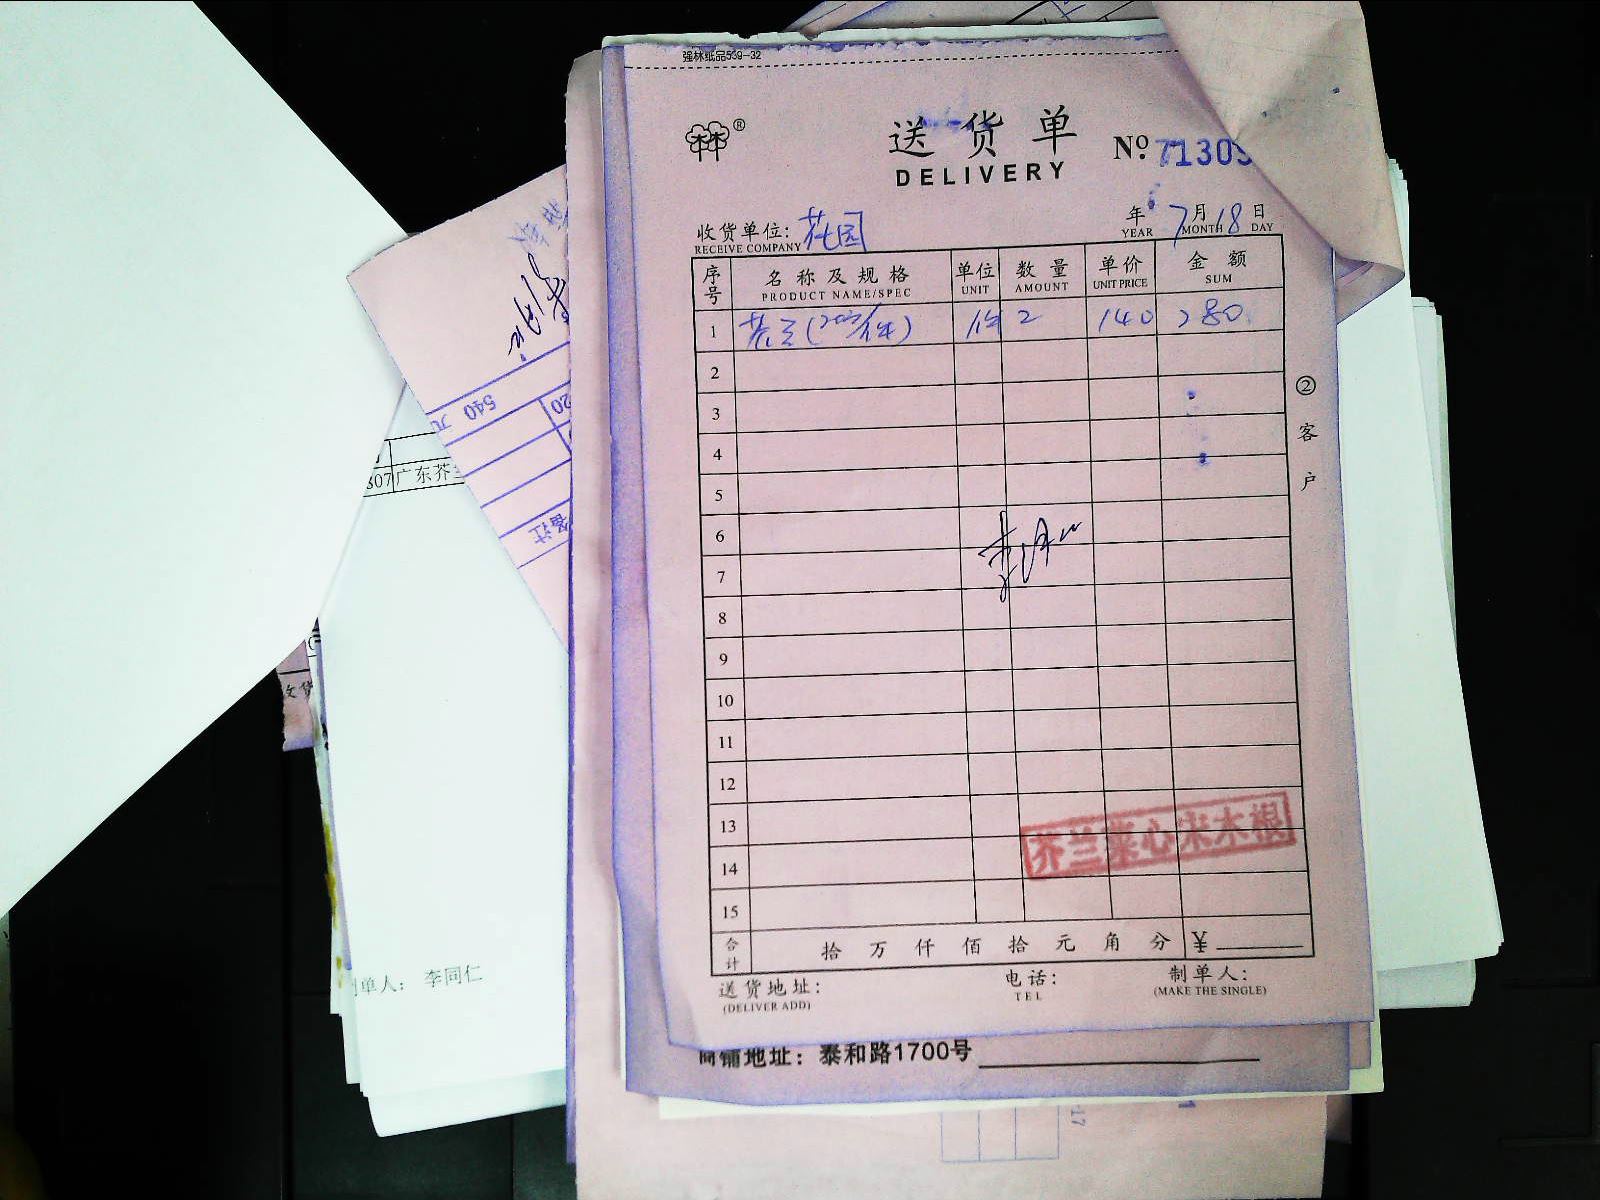 强林纸品539-32
®
送货单
DELIVERY
Nº 7130
收货单位: 花园
RECEIVE COMPANY
年 7月18日
YEAR MONTH DAY
序号 名称及规格 单位 数量 单价 金额
PRODUCT NAME/SPEC UNIT AMOUNT UNIT PRICE SUM
1 件 2 140 280
2
3
4
5
6
7
8
9
10
11
12
13
14
15
② 客户
芥兰菜心宋木根
合计 拾 万 仟 佰 拾 元 角 分 ¥
送货地址: 电话: 制单人:
(DELIVER ADD) TEL (MAKE THE SINGLE)
商铺地址: 泰和路1700号
17
540 元
20
备注
307 广东芥
收货
制单人: 李同仁